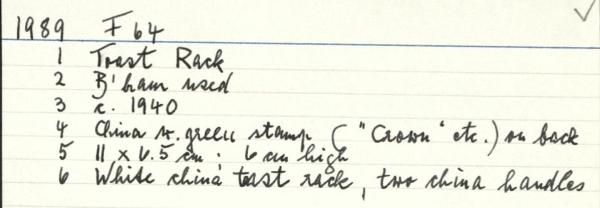 1989 F64
1 Toast Rack
2 B'ham used
3 c. 1940
4 China w. green stamp ("Crown" etc.) on back
5 11 x 6.5 cm : 6 cm high
6 White china toast rack, two china handles